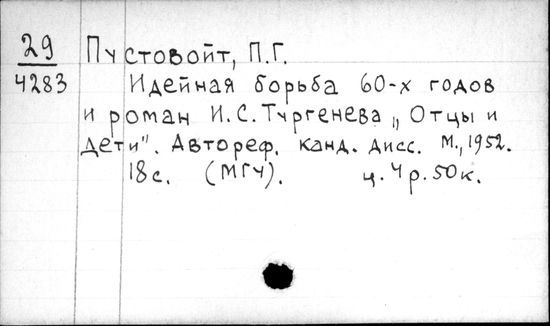 29 Пустовойт, П.Г.
4283 Идейная борьба 60-х годов
и роман И.С.Тургенева „Отцы и
дети". Автореф. канд. дисс. М., 1952.
18с. (МГУ). ц. 4р.50к.